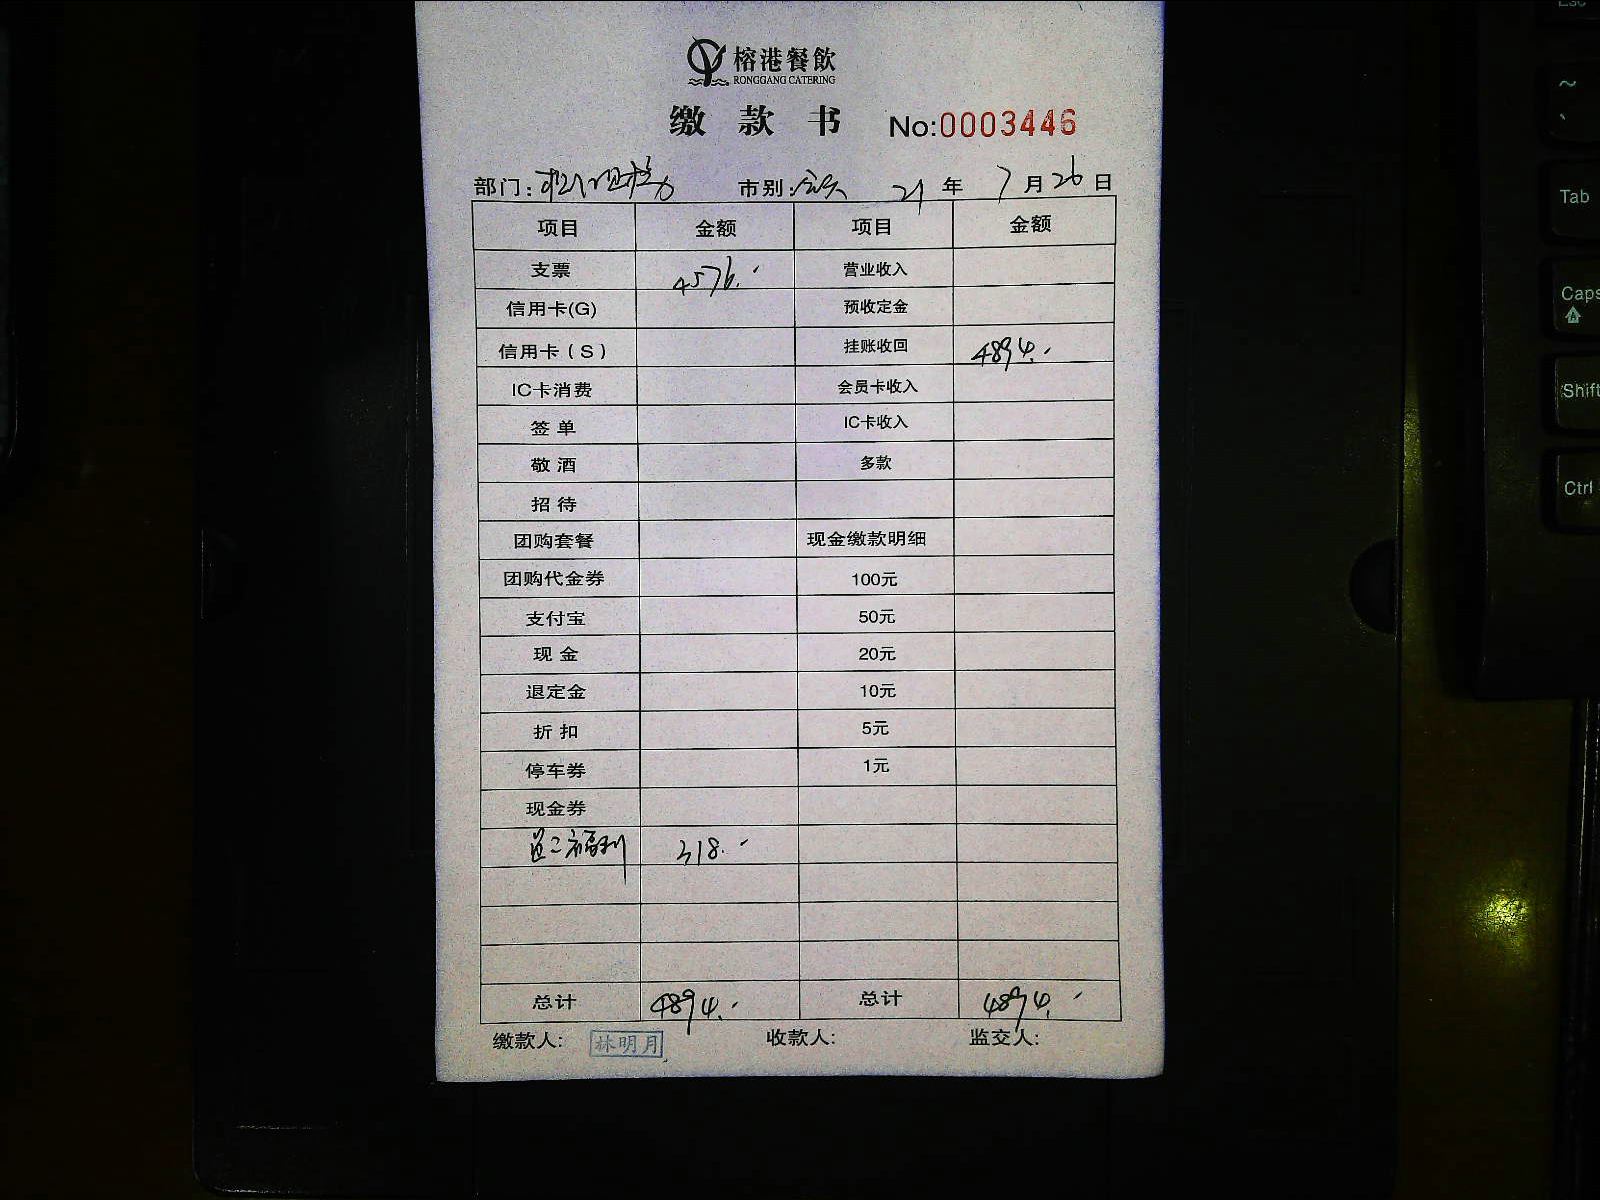 榕港餐飲
RONGGANG CATERING
缴 款 书 No:0003446
部门: 市别: 21 年 7 月 26 日
项目 金额 项目 金额
支票 4576.- 营业收入
信用卡(G) 预收定金
信用卡（S） 挂账收回 4894.-
IC卡消费 会员卡收入
签 单 IC卡收入
敬 酒 多款
招 待
团购套餐 现金缴款明细
团购代金券 100元
支付宝 50元
现 金 20元
退定金 10元
折 扣 5元
停车券 1元
现金券
福利 318.-
总计 4894.- 总计 4894.-
缴款人: 林明月 收款人: 监交人:
Esc
~
、
Tab
Caps
Shift
Ctrl